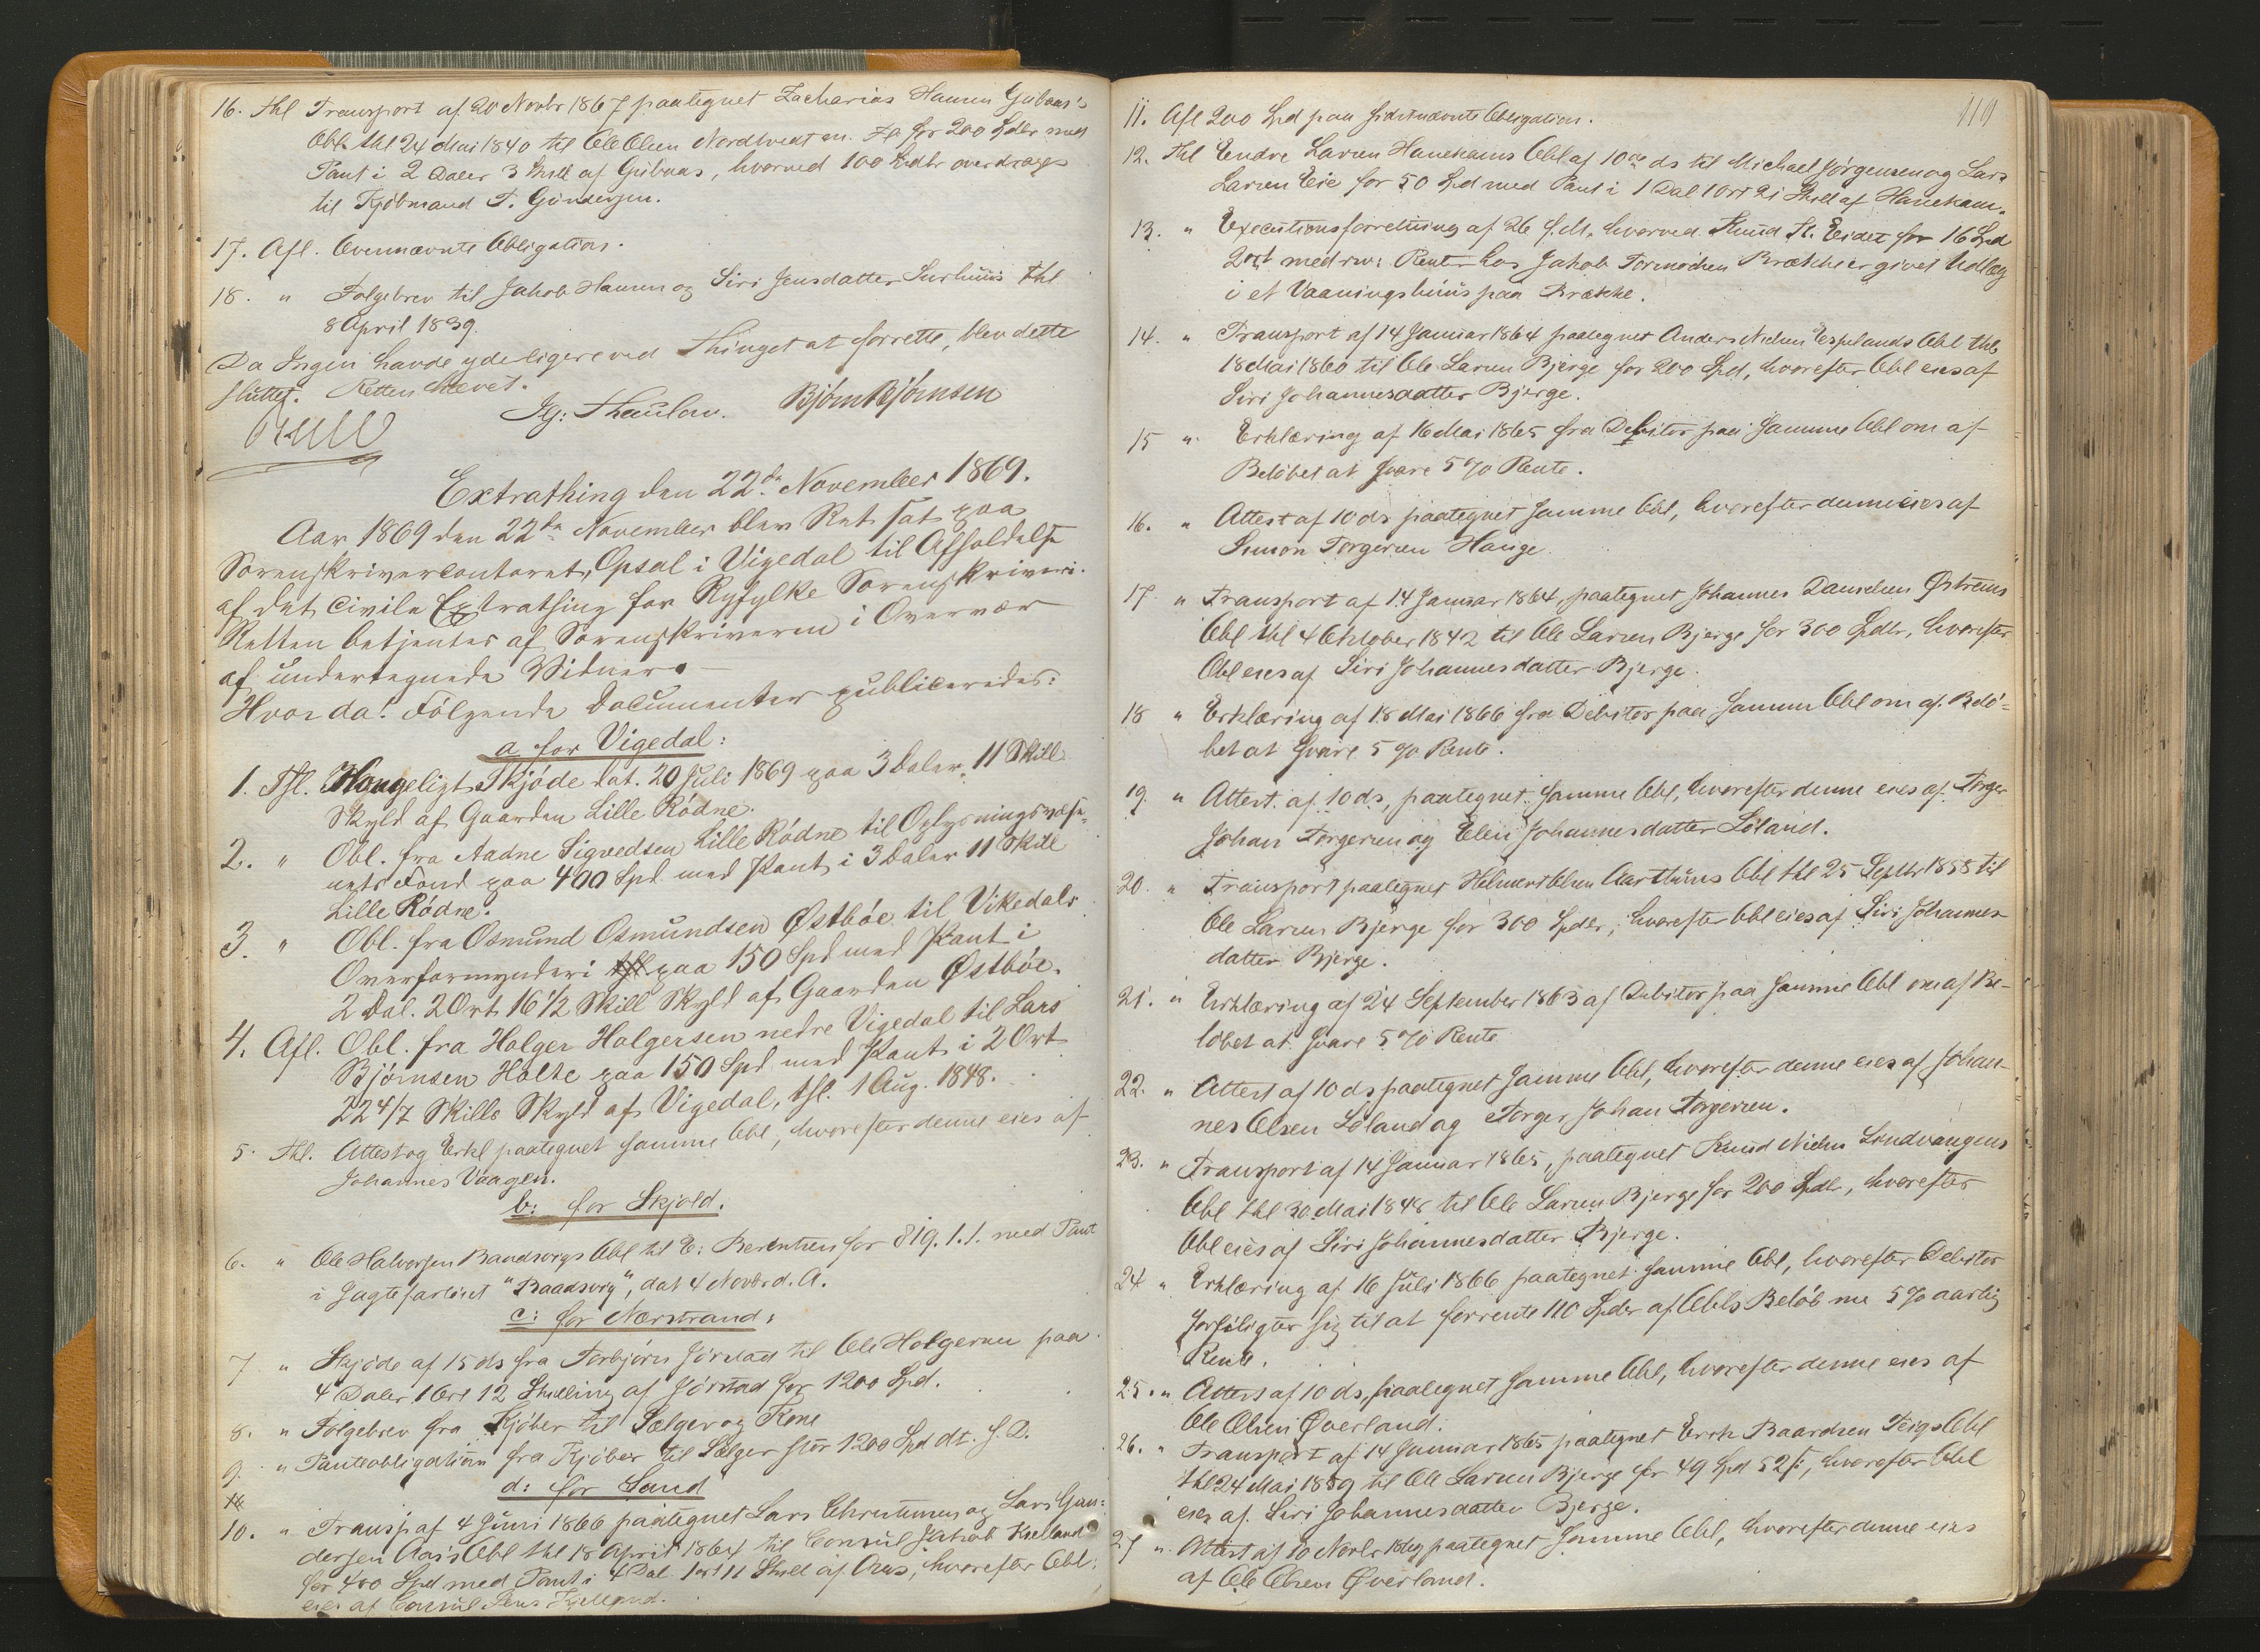 16. thl Transport af 20 Novbr 1867 paategnet Zacharias Hansen
Obl. thl 24 Mai 1840 til Ole Olsen Nordtvedt en. for 200 Spdlr med
Pant i 2 Daler 3 Skill af, hvorved 100 Spdlr overdrages
til Kjöbmand T. Gundersen.
17. Afl. Ovennævnte Obligation.
18. " Følgebrev til Jakob Hansen og Siri Jensdatter thl
8 April 1839.
Da Ingen havde ydeligere ved Thinget at forrette, blev dette
sluttet. Retten hævet.
Thaulow. Bjørn Bjørnsen
Extrathing den 22de November 1869.
Aar 1869 den 22de November blev Ret sat paa
Sorenskrivercontoret, Opsal i Vigedal til Afholdelse
af det civile Extrathing for Ryfylke Sorenskriveri.
Retten betjentes af Sorenskriveren i Overvær
af undertegnede Vidner.
Hvor da! Fölgende Documenter publiceredes:
a for Vigedal:
1. Thl. Kongeligt Skjöde dat. 20 Juli 1869 paa 3 Daler 11 Skill
Skyld af Gaarden Lille Rödne.
2. " Obl. fra Aadne Sigvedsen Lille Rödne til Oplysningsvæse-
nets Fond paa 400 Spd med Pant i 3 Daler 11 Skill
Lille Rödne.
3. " Obl. fra Osmund Osmundsen Østböe til Vikedals
Overformynderi paa 150 Spd med Pant i
2 Dal. 2 Ort 16 1/2 Skill Skyld af Gaarden Østböe.
4. Afl. Obl. fra Holger Holgersen nedre Vigedal til Lars
Björnsen Holte paa 150 Spd med Pant i 2 Ort
22 4/7 Skills Skyld af Vigedal, thl. 1 Aug. 1848.
5. Thl. Attest og Erkl paategnet samme Obl, hvorefter denne eies af
Johannes Vaagen.
b: for Skjold.
6. " Ole Halvorsen Baadsvigs Obl til E: Berentsen for 819.1.1. med Pant
i Jagtefartöiet "Baadsvig", dat 4 Novbr d. A.
c: for Nærstrand:
7 " Skjøde af 15 ds fra Torbjörn Jörstad til Ole Holgersen paa
4 Daler 1 Ort 12 Skilling af Jörstad for 1200 Spd.
8. " Følgebrev fra Kjöber til Sælger og Kone
9. " Panteobligation fra Kjöber til Sælger stor 1200 Spd dt. s. D.
d: for Sand
10. " Transp af 4 Juni 1866 paategnet Lars Christensen og Lars Gun:
dersen Aas's Obl thl 18 April 1864 til Consul Jakob Kielland
for 400 Spd med Pant i 4 Dal 1 ort 11 Skill af Aas, hvorefter Obl:
eies af Consul Jens Kielland.
110
11. Afl 200 Spd paa sidstnævnte Obligation.
12. Thl Endre Larsen Hanekams Obl af 10de ds til Michael Jørgensen og Lars
Larsen Eie for 50 Spd med Pant i 1 Dal 1 Ort 21 Skill af Hanekam.
13. " Executionsforretning af 26 f. M. hvorved Knud Eidet for 16 Spd
2 ort med Renter hos Jakob Tormodsen Brække er givet Udlæg
i et Vaaningshuus paa Brække.
14. " Transport af 14 Januar 1864 paategnet Anders Nielsen Espelands Obl thl
18 Mai 1860 til Ole Larsen Bjerge for 200 Spd, hvorefter Obl eies af
Siri Johannesdatter Bjerge.
15 " Erklæring af 16 Mai 1865 fra Debitor paa samme Obl om af
Belöbet at svare 5 % Rente.
16. " Attest af 10 ds paategnet samme Obl, hvorefter denne eies af
Simon Torgersen Hauge.
17 " Transport af 14 Januar 1864, paategnet Johannes Danielsen Østreims
Obl thl 4 Oktober 1842 til Ole Larsen Bjerge for 300 Spdlr, hvorefter
Obl eies af Siri Johannesdatter Bjerge.
18 " Erklæring af 18 Mai 1866 fra Debitor paa samme Obl om af Belö-
bet at svare 5 % Rente.
19. " Attest af 10 ds, paategnet samme Obl, hvorefter denne eies af Torger
Johan Torgersen og Elen Johannesdatter Löland.
20. " Transport paategnet Helmert Olsen Aarthuns Obl thl 25 Septbr 1858 til
Ole Larsen Bjerge for 300 Spdlr, hvorefter Obl eies af Siri Johannes-
datter Bjerge.
21. " Erklæring af 24 September 1863 af Debitor paa samme Obl om af Be-
löbet at svare 5 % Rente
22. " Attest af 10 ds paategnet samme Obl, hvorefter denne eies af Johan-
nes Olsen Löland og Torger Johan Torgersen.
23. " Transport af 14 Januar 1865, paategnet Knud Nielsen Landvangens
Obl thl 30 Mai 1848 til Ole Larsen Bjerge for 200 Spdlr, hvorefter
Obl eies af Siri Johannesdatter Bjerge.
24 " Erklæring af 16 Juli 1866 paategnet samme Obl, hvorefter Debitor
forpligter sig til at forrente 110 Spdlr af Obls Belöb me 5 % aarlig
Rente.
25. " Attest af 10 ds, paategnet samme Obl, hvorefter denne eies af
Ole Olsen Øverland.
26. " Transport af 14 Januar 1865 paategnet Erik Baardsen Teigs Obl
thl 24 Mai 1859 til Ole Larsen Bjerge for 49 Spd 52 s, hvorefter Obl
eies af Siri Johannesdatter Bjerge.
27 " Attest af 10 Novbr 1869 paategnet samme Obl, hvorefter denne eies
af Ole Olsen Øverland.